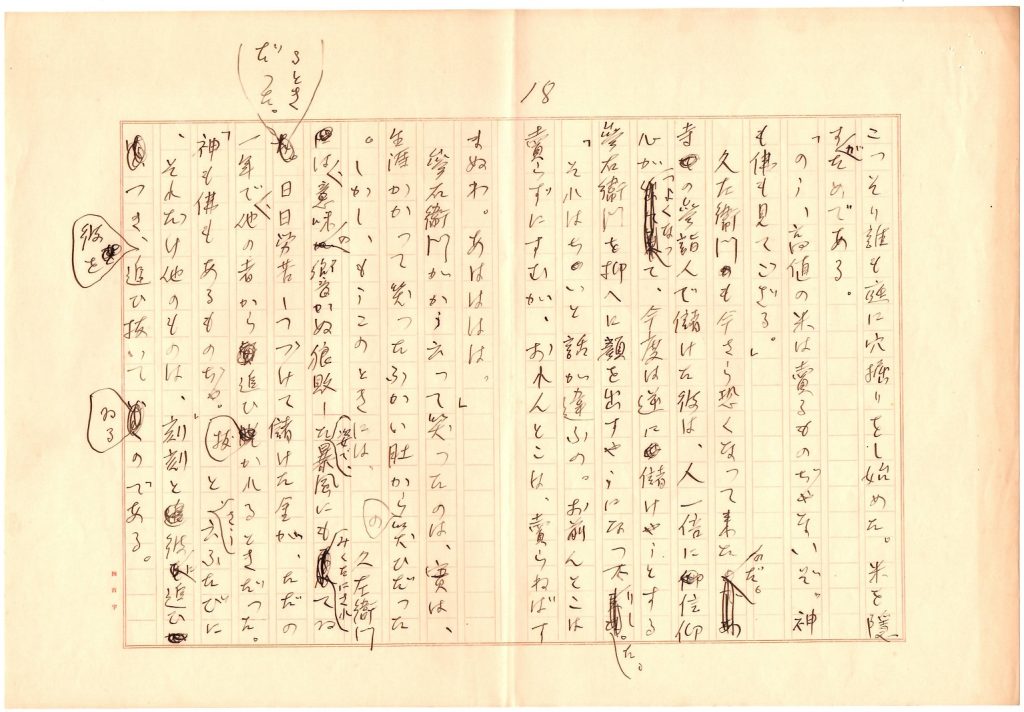 18
こつそり誰も彼に穴掘りをし始めた。米を隠
すがためである。
「のう、高値の米は賣るものぢやないぞ。神
も佛も見てござる。」
久左衛門も今さら恐くなつて来たのだ。
寺の参詣人で儲けた彼は、人一倍に信仰
心がつよくなつて、今度は逆に儲けやうとする
参右衛門を抑へに顔を出すやうになつたりした。
「それはちよいと話が違ふの。お前んとこは
賣らずにすむが、おれんとこは、賣らねばす
まぬわ。あはははは。」
参右衛門がかう云つて笑つたのは、實は、
生涯かかつて笑つたふかい肚からの笑ひだつた
。しかし、もうこのときには、久左衛門
は、意味の響かぬ狼敗した姿で、暴風にもみくたにされ
るときだつた。
日日労苦しつづけて儲けた金が、ただの
一年で、他の者から追ひ抜かれるときだつた。
「神も佛もあるものぢや。」とさう云ふたびに
、それだけ他のものは、刻刻と彼に追ひ
つき、彼を追ひ抜いてゐるのである。